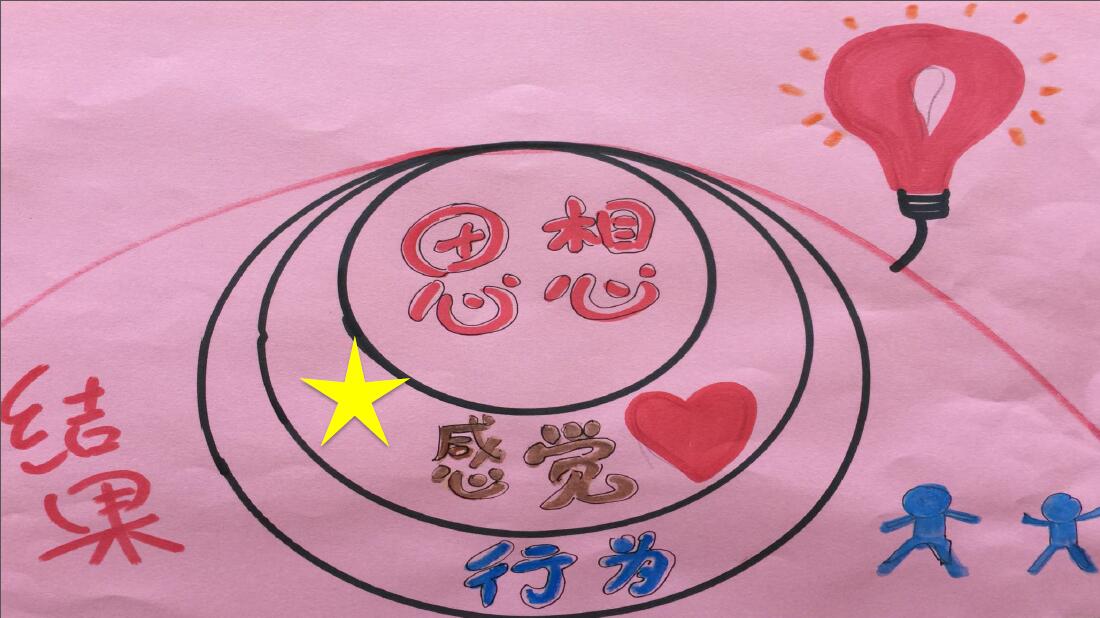 思想
感觉
行为
结果